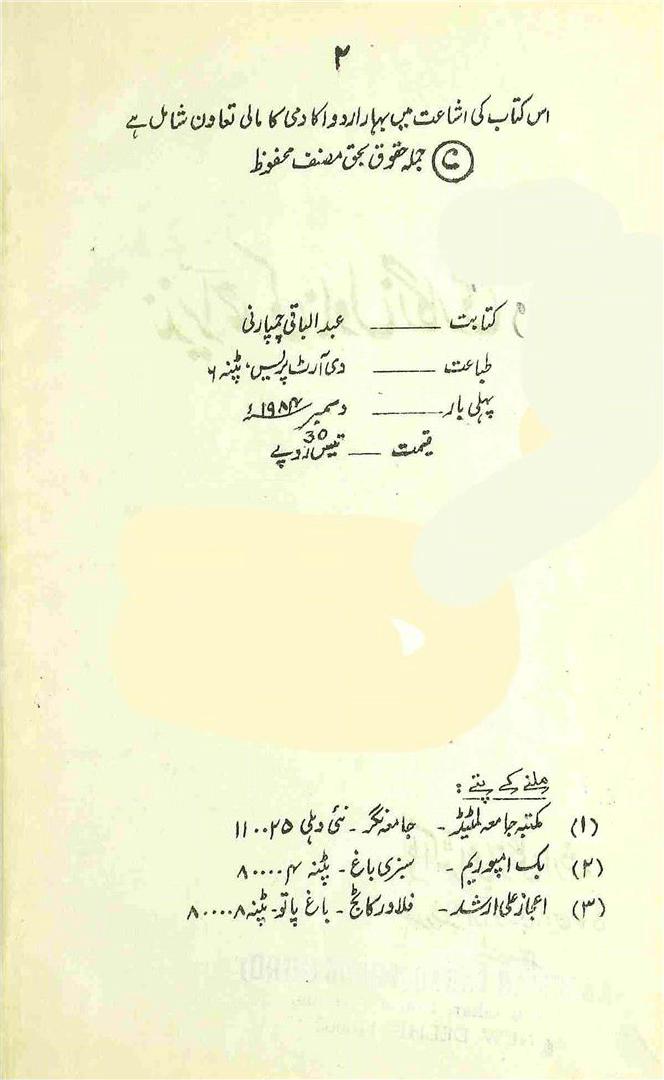 ۲
اس کتاب کی اشاعت میں بہار اردو اکادمی کا مالی تعاون شامل ہے
© جملہ حقوق بحق مصنف محفوظ
کتابت ——— عبد الباقی چمپارنی
طباعت ——— دی آرٹ پریس، پٹنہ ۶
پہلی بار ——— دسمبر ۱۹۸۴ء
قیمت —— تیس 30 روپے
ملنے کے پتے :
(۱) مکتبہ جامعہ لمٹیڈ - جامعہ نگر - نئی دہلی ۱۱۰۰۲۵
(۲) بک امپوریم - سبزی باغ - پٹنہ ۸۰۰۰۰۴
(۳) اعجاز علی ارشد - فلاور کاٹج - باغ پاتو - پٹنہ ۸۰۰۰۰۸